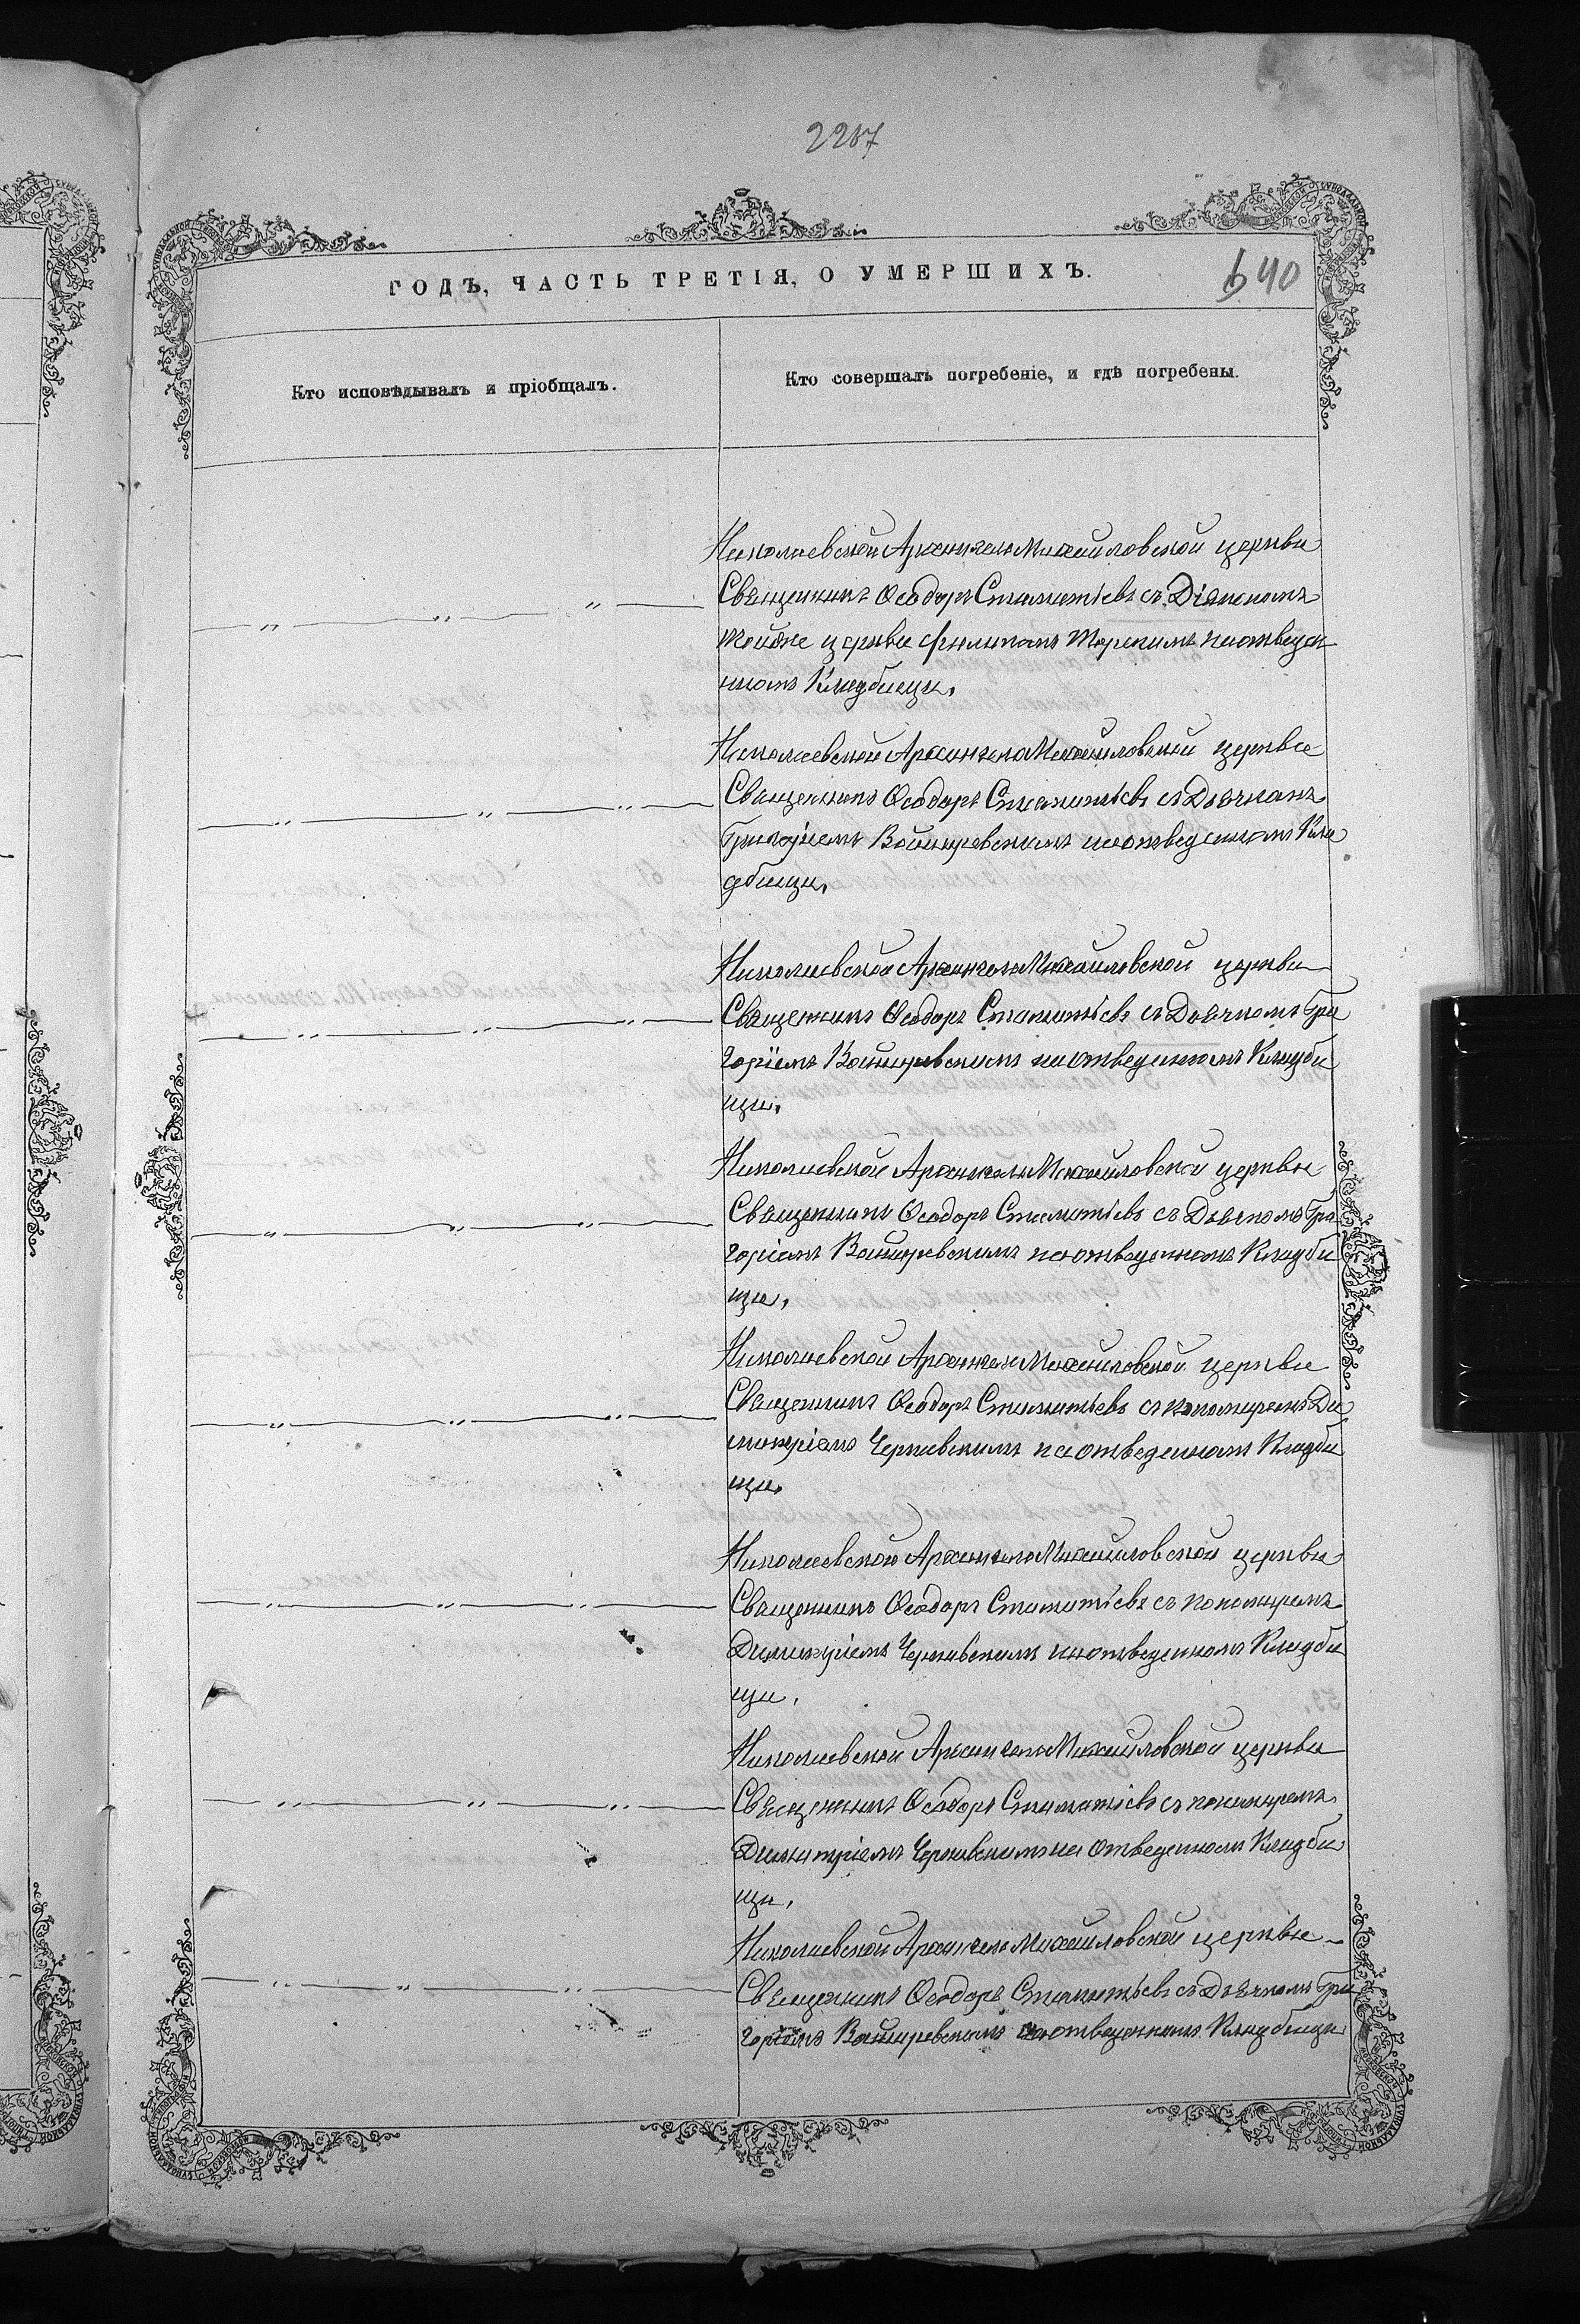 2287
ГОДЪ, ЧАСТЬ ТРЕТІЯ, О УМЕРШИХЪ.
640
Кто исповѣдывалъ и пріобщалъ.
Кто совершалъ погребеніе, и гдѣ погребены.
Николаевской АрхангелоМихайловской церкви
Священникъ Ѳеодоръ Стаматіевъ съ Діакономъ
тойже церкви Филипомъ на отведен
номъ Кладбищи.
Николаевской АрхангелоМихайловской церкви
Священникъ Ѳеодоръ Стаматіевъ съ Дьячкомъ
Григоріемъ на отведенномъ Кла
дбищи.
Николаевской АрхангелоМихайловской церкви
Священникъ Ѳеодоръ Стаматіевъ съ Дьячкомъ Гри
горіемъ на отведенномъ Кладби
щи.
Николаевской АрхангелоМихайловской церкви
Священникъ Ѳеодоръ Стаматіевъ съ Дьячкомъ Гри
горіемъ на отведенномъ Кладби
щи.
Николаевской АрхангелоМихайловской церкви
Священникъ Ѳеодоръ Стаматіевъ съ пономаремъ Ди
митріемъ Чернявскимъ на отведенномъ Кладби
щи.
Николаевской АрхангелоМихайловской церкви
Священникъ Ѳеодоръ Стаматіевъ съ пономаремъ
Димитріемъ Чернявскимъ на отведенномъ Кладби
щи.
Николаевской АрхангелоМихайловской церкви
Священникъ Ѳеодоръ Стаматіевъ съ пономаремъ
Димитріемъ Чернявскимъ на отведенномъ Кладби
щи.
Николаевской АрхангелоМихайловской церкви
Священникъ Ѳеодоръ Стаматіевъ съ Дьячкомъ Гри
горіемъ на отведенномъ Кладбищи